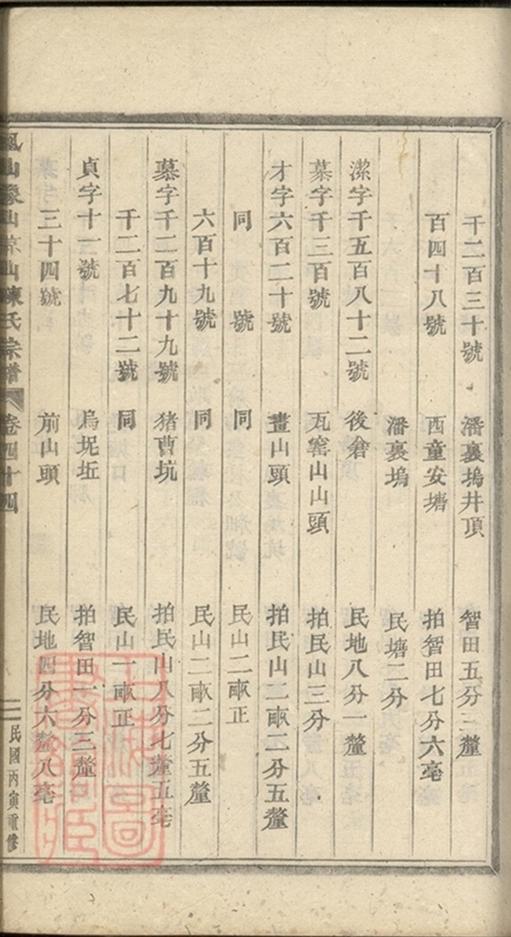 千二百三十號 潘裏塢井頂 智田五分三釐
百四十八號 西童安塘 拍智田七分六毫
潘裏塢 民塘二分
潔字千五百八十二號 後倉 民地八分一釐
慕字千三百號 瓦窰山山頭 拍民山三分
才字六百二十號 畫山頭 拍民山二畝二分五釐
同 號 同 民山二畝正
六百十九號 同 民山二畝二分五釐
慕字千二百九十九號 猪曹坑 拍民山八分七釐五毫
千二百七十二號 同 民山一畝正
貞字十一號 烏坭坵 拍智田一分三釐
三十四號 前山頭 民地四分六釐八毫
山象山 山陳氏宗譜 卷四十四 民國丙寅重修